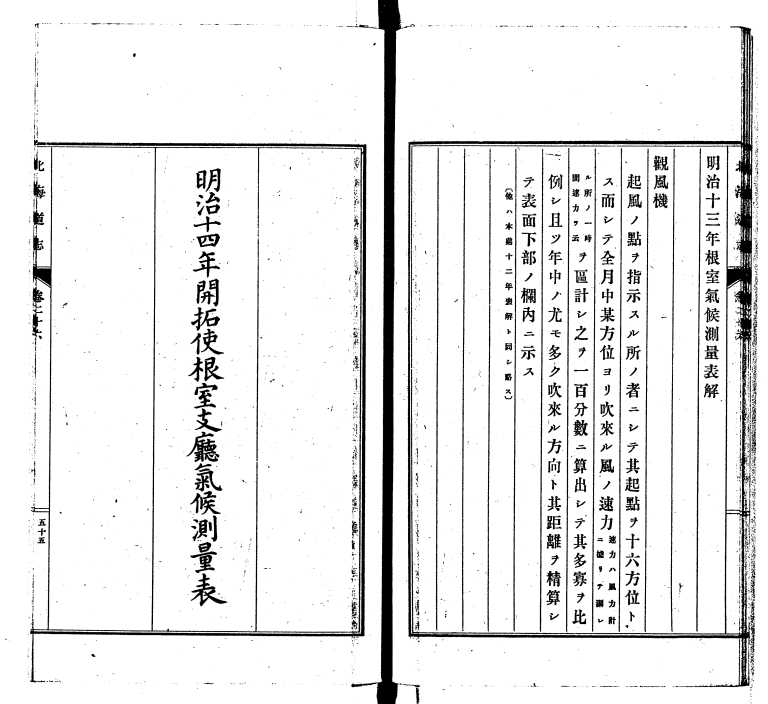 明治十三年根室氣候測量表解
觀風機
起風ノ點ヲ指示スル所ノ者ニシテ其起點ヲ十六方位ト
ス而シテ全月中某方位ヨリ吹來ル風ノ速力速力ハ風力計ニ據リテ測レ
ル所ノ一時間速力ヲ云ヲ區計シ之ヲ一百分數ニ算出シテ其多寡ヲ比
例シ且ツ年中ノ尤モ多ク吹來ル方向ト其距離ヲ精算シ
テ表面下部ノ欄内ニ示ス
(他ハ本廳十二年表解ト同シ略ス)
明治十四年開拓使根室支廳氣候測量表
北海道志
卷之十六
五十五